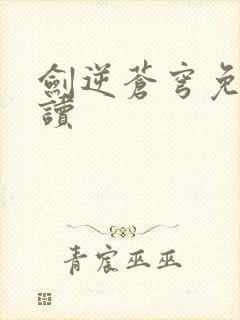 劍逆蒼穹免
讀
青宸巫巫